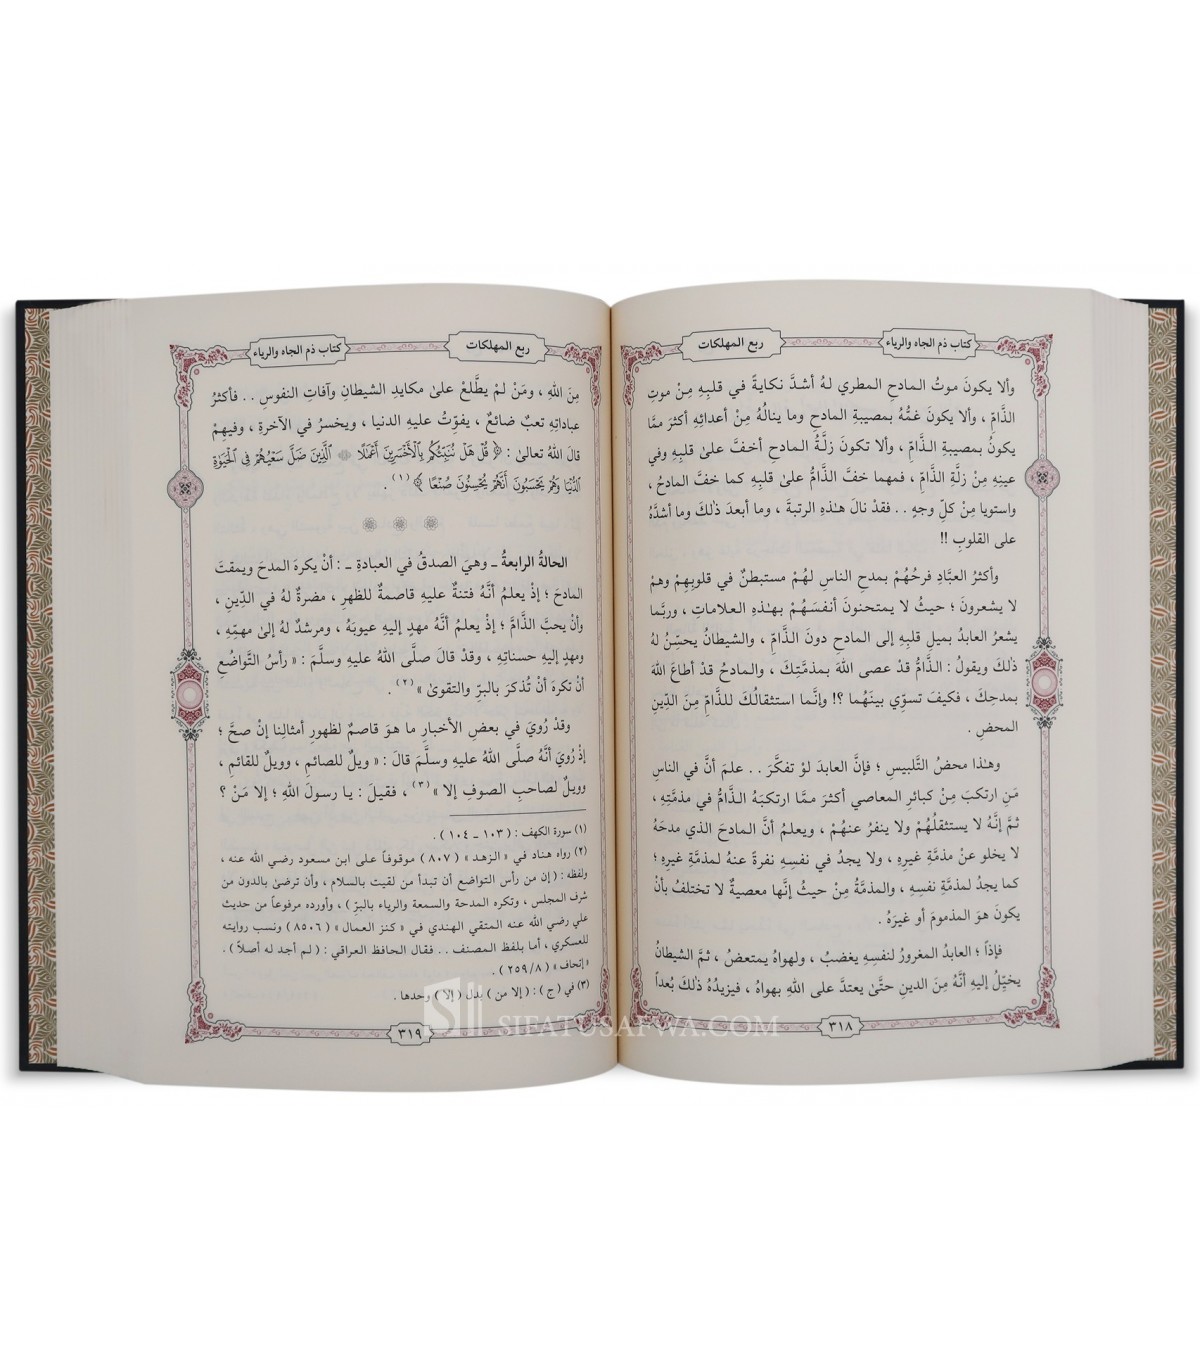 كتاب ذم الجاه والرياء
ربع المهلكات
وألا يكونَ موتُ المادحِ المطري لهُ أشدَّ نكايةً في قلبِهِ مِنْ موتِ
الذَّامِّ ، وألا يكونَ غمُّهُ بمصيبةِ المادحِ وما ينالُهُ مِنْ أعدائِهِ أكثرَ ممَّا
يكونُ بمصيبةِ الذَّامِّ ، وألا تكونَ زلَّةُ المادحِ أخفَّ علىٰ قلبِهِ وفي
عينِهِ مِنْ زلَّةِ الذَّامِّ ، فمهما خفَّ الذَّامُّ علىٰ قلبِهِ كما خفَّ المادحُ ،
واستويا مِنْ كلِّ وجهٍ . . فقدْ نالَ هـٰذهِ الرتبةَ ، وما أبعدَ ذٰلكَ وما أشدَّهُ
على القلوبِ !!
وأكثرُ العبَّادِ فرحُهُمْ بمدحِ الناسِ لهُمْ مستبطنٌ في قلوبِهِمْ وهمْ
لا يشعرونَ ؛ حيثُ لا يمتحنونَ أنفسَهُمْ بهـٰذهِ العلاماتِ ، وربَّما
يشعرُ العابدُ بميلِ قلبِهِ إلى المادحِ دونَ الذَّامِّ ، والشيطانُ يحسِّنُ لهُ
ذٰلكَ ويقولُ : الذَّامُّ قدْ عصى اللهَ بمذمَّتِكَ ، والمادحُ قدْ أطاعَ اللهَ
بمدحِكَ ، فكيفَ تسوِّي بينَهُما ؟! وإنَّما استثقالُكَ للذَّامِّ مِنَ الدِّينِ
المحضِ .
وهـٰذا محضُ التَّلبيسِ ؛ فإنَّ العابدَ لوْ تفكَّرَ . . علمَ أنَّ في الناسِ
مَنِ ارتكبَ مِنْ كبائرِ المعاصي أكثرَ ممَّا ارتكبَهُ الذَّامُّ في مذمَّتِهِ ،
ثمَّ إنَّهُ لا يستثقلُهُمْ ولا ينفرُ عنهُمْ ، ويعلمُ أنَّ المادحَ الذي مدحَهُ
لا يخلو عنْ مذمَّةِ غيرِهِ ، ولا يجدُ في نفسِهِ نفرةً عنهُ لمذمَّةِ غيرِهِ ؛
كما يجدُ لمذمَّةِ نفسِهِ ، والمذمَّةُ مِنْ حيثُ إنَّها معصيةٌ لا تختلفُ بأنْ
يكونَ هوَ المذمومَ أوْ غيرَهُ .
فإذاً ؛ العابدُ المغرورُ لنفسِهِ يغضبُ ، ولهواهُ يمتعضُ ، ثمَّ الشيطانُ
يخيِّلُ إليهِ أنَّهُ مِنَ الدينِ حتَّىٰ يعتدَّ على اللهِ بهواهُ ، فيزيدُهُ ذٰلكَ بُعداً
٣١٨
ربع المهلكات
كتاب ذم الجاه والرياء
مِنَ اللهِ ، ومَنْ لمْ يطَّلعْ علىٰ مكايدِ الشيطانِ وآفاتِ النفوسِ . . فأكثرُ
عباداتِهِ تعبٌ ضائعٌ ، يفوِّتُ عليهِ الدنيا ، ويخسرُ في الآخرةِ ، وفيهِمْ
قالَ اللهُ تعالىٰ : ﴿ قُلْ هَلْ نُنَبِّئُكُم بِالْأَخْسَرِينَ أَعْمَٰلًا ۝ ٱلَّذِينَ ضَلَّ سَعْيُهُمْ فِى ٱلْحَيَوٰةِ
ٱلدُّنْيَا وَهُمْ يَحْسَبُونَ أَنَّهُمْ يُحْسِنُونَ صُنْعًا ﴾(١) .
الحالةُ الرابعةُ ـ وهيَ الصدقُ في العبادةِ ـ : أنْ يكرهَ المدحَ ويمقتَ
المادحَ ؛ إذْ يعلمُ أنَّهُ فتنةٌ عليهِ قاصمةٌ للظهرِ ، مضرةٌ لهُ في الدِّينِ ،
وأنْ يحبَّ الذَّامَّ ؛ إذْ يعلمُ أنَّهُ مهدٍ إليهِ عيوبَهُ ، ومرشدٌ لهُ إلىٰ مهمِّهِ ،
ومهدٍ إليهِ حسناتِهِ ، وقدْ قالَ صلَّى اللهُ عليهِ وسلَّمَ : « رأسُ التَّواضُعِ
أنْ تكرهَ أنْ تُذكرَ بالبرِّ والتقوىٰ »(٢) .
وقدْ رُويَ في بعضِ الأخبارِ ما هوَ قاصمٌ لظهورِ أمثالِنا إنْ صحَّ ؛
إذْ رُويَ أنَّهُ صلَّى اللهُ عليهِ وسلَّمَ قالَ : « ويلٌ للصائمِ ، وويلٌ للقائمِ ،
وويلٌ لصاحبِ الصوفِ إلا »(٣) ، فقيلَ : يا رسولَ اللهِ ؛ إلا مَنْ ؟
(١) سورة الكهف : ( ١٠٣ – ١٠٤ ) .
(٢) رواه هناد في « الزهد » ( ٨٠٧ ) موقوفاً على ابن مسعود رضي الله عنه ،
ولفظه : ( إن من رأس التواضع أن تبدأ من لقيت بالسلام ، وأن ترضىٰ بالدون من
شرف المجلس ، وتكره المدحة والسمعة والرياء بالبرّ ) ، وأورده مرفوعاً من حديث
علي رضي الله عنه المتقي الهندي في « كنز العمال » ( ٨٥٠٦ ) ونسب روايته
للعسكري ، أما بلفظ المصنف . . فقال الحافظ العراقي : ( لم أجد له أصلاً ) .
« إتحاف » ( ٢٥٩/٨ ) .
(٣) في ( ج ) : ( إلا من ) بدل ( إلا ) وحدها .
٣١٩
SIFATUSAFWA.COM